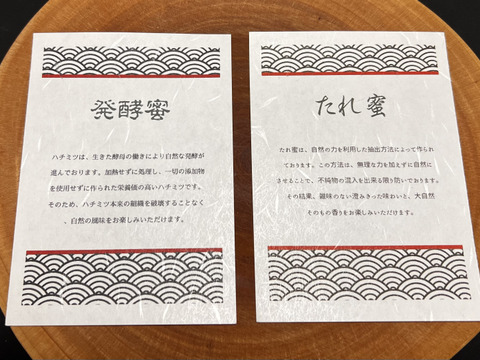 発酵蜜
ハチミツは、生きた酵母の働きにより自然な発酵が
進んでおります。加熱せずに処理し、一切の添加物
を使用せずに作られた栄養価の高いハチミツです。
そのため、ハチミツ本来の組織を破壊することなく
、自然の風味をお楽しみいただけます。
たれ蜜
たれ蜜は、自然の力を利用した抽出方法によって作られ
ております。この方法は、無理な力を加えずに自然に
させることで、不純物の混入を出来る限り防いでおります。
その結果、雑味のない澄みきった味わいと、大自然
そのもの香りをお楽しみいただけます。